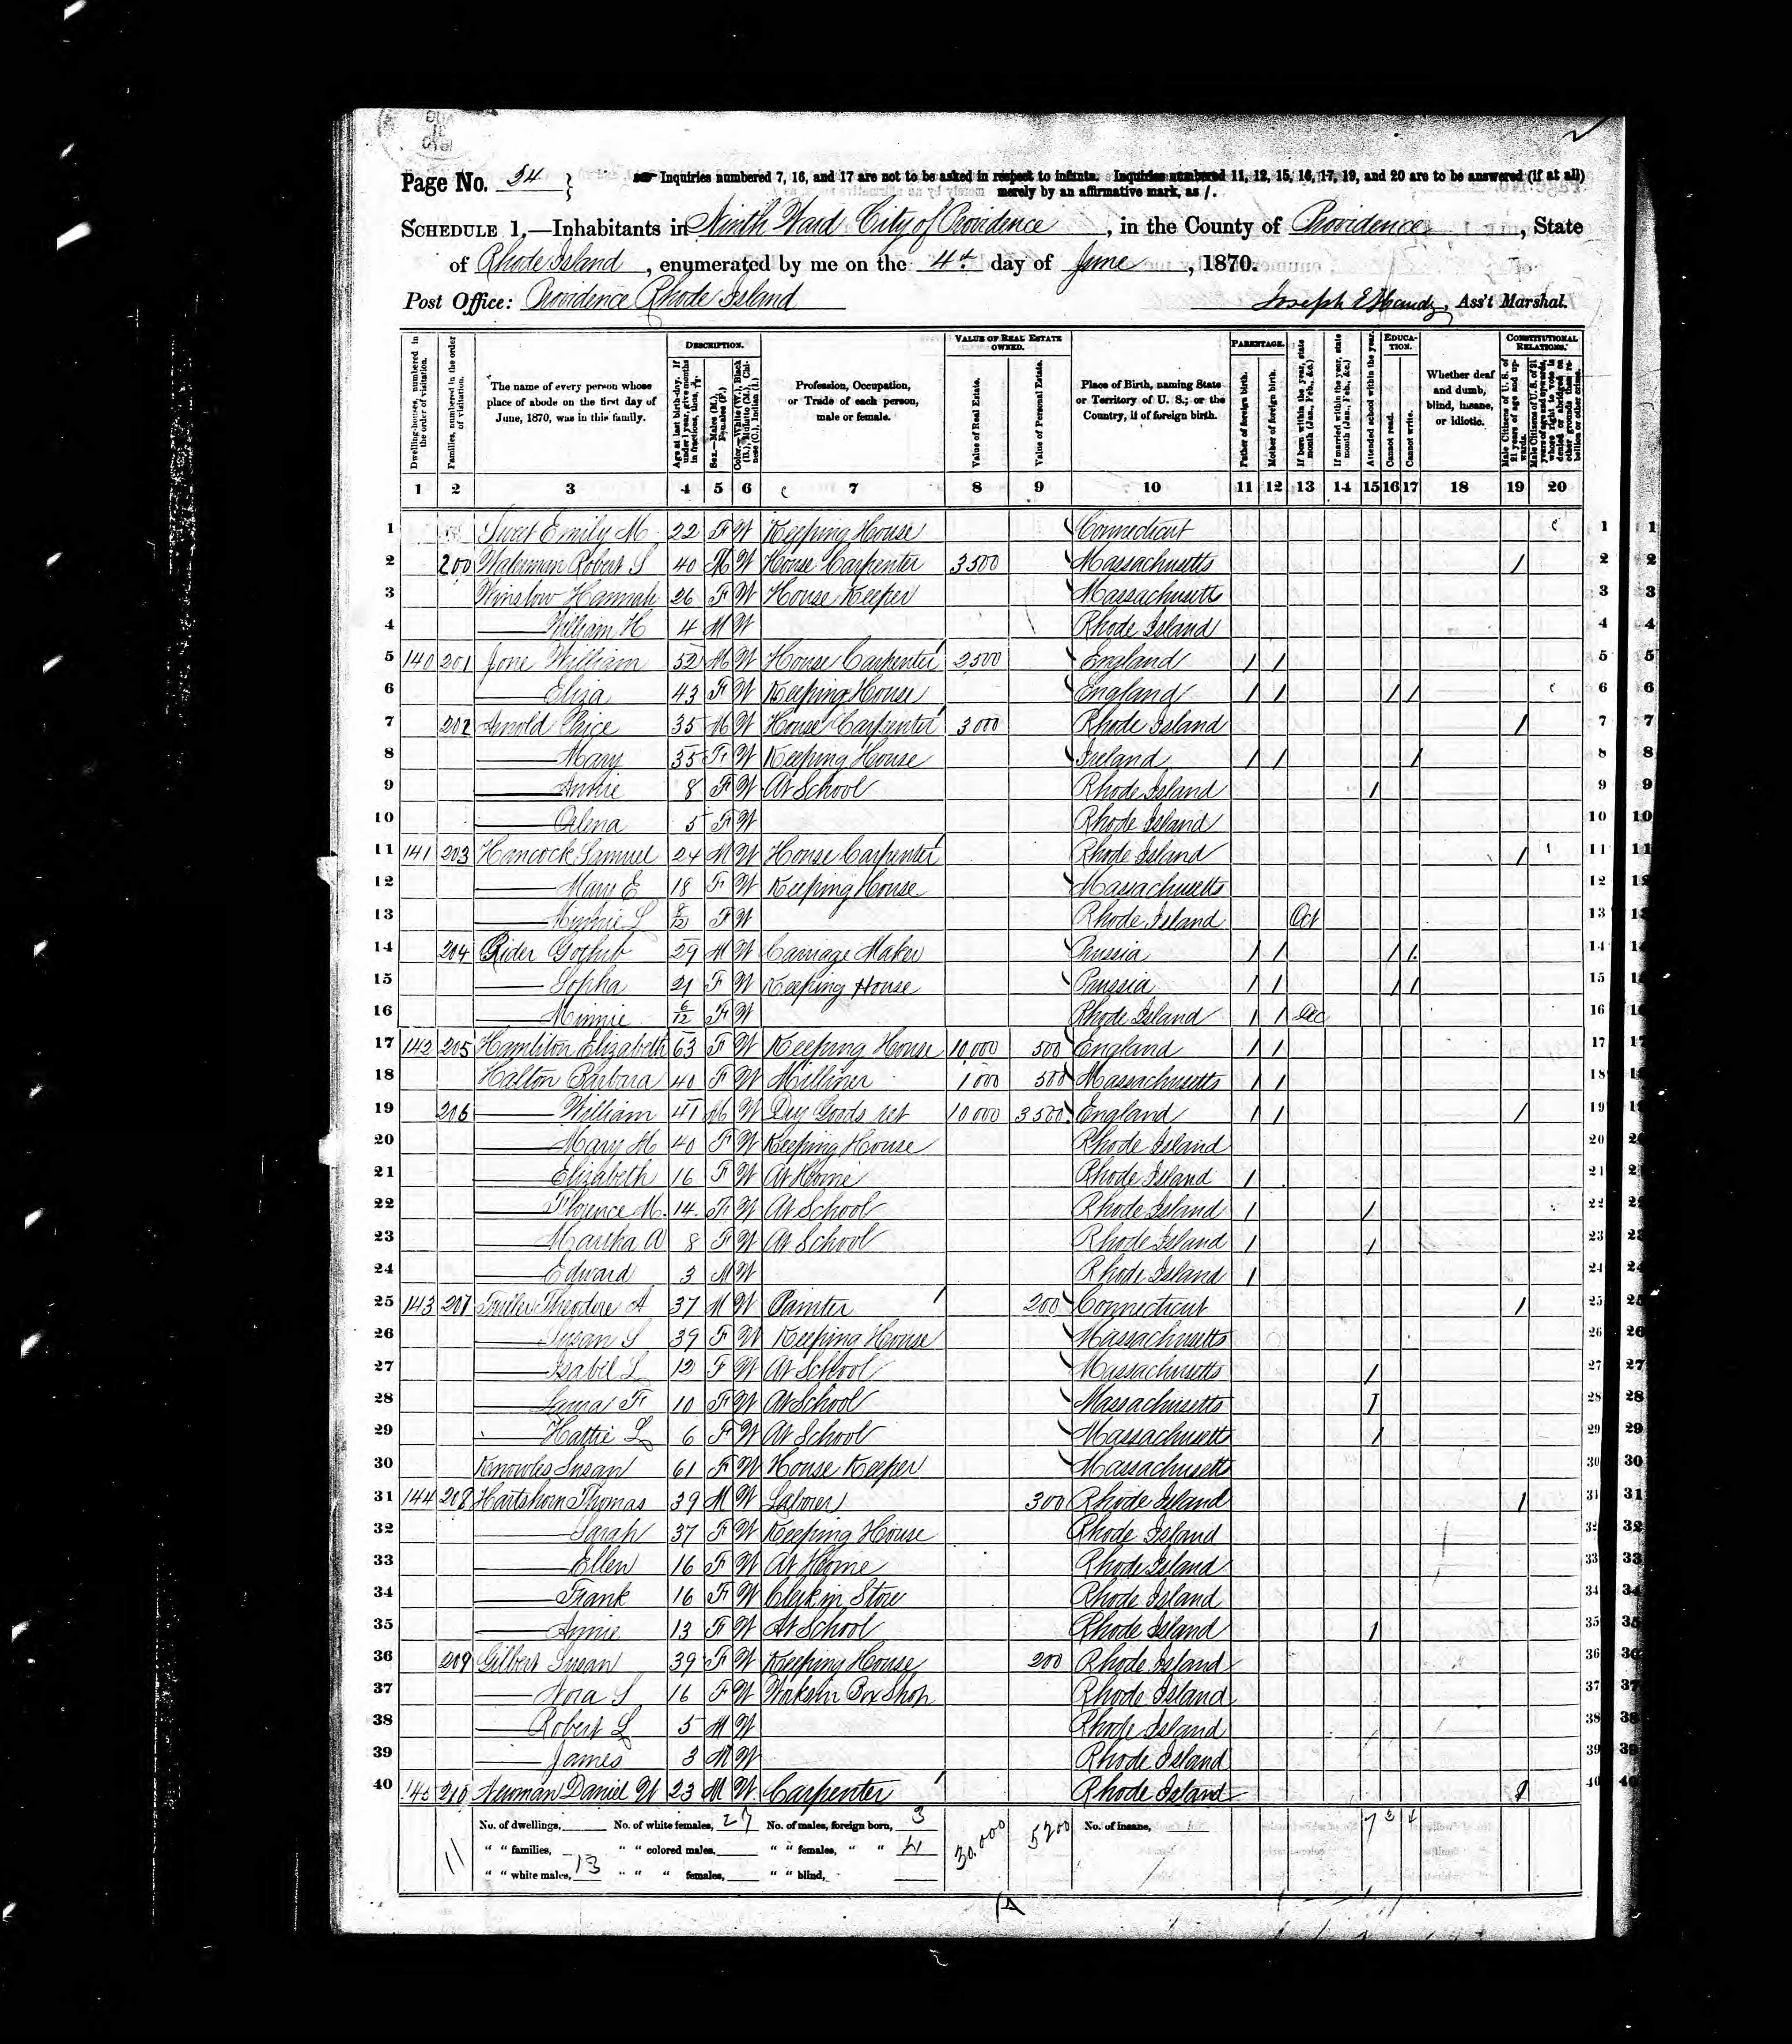 Page No. 24
Inquiries numbered 7, 16, and 17 are not to be asked in respect to infants. Inquiries numbered 11, 12, 15, 16, 17, 19, and 20 are to be answered (if at all)
merely by an affirmative mark, as /.
SCHEDULE 1.—Inhabitants in Ninth Ward City of Providence, in the County of Providence, State
of Rhode Island, enumerated by me on the 4th day of June, 1870.
Post Office: Providence Rhode Island
Joseph E Handy, Ass't Marshal.
Dwelling-houses, numbered in the order of visitation.
Families, numbered in the order of visitation.
The name of every person whose place of abode on the first day of June, 1870, was in this family.
DESCRIPTION.
Age at last birth-day. If under 1 year, give months in fractions, thus, 3/12.
Sex.—Males (M.), Females (F.)
Color.—White (W.), Black (B.), Mulatto (M.), Chinese (C.), Indian (I.)
Profession, Occupation, or Trade of each person, male or female.
VALUE OF REAL ESTATE OWNED.
Value of Real Estate.
Value of Personal Estate.
Place of Birth, naming State or Territory of U. S.; or the Country, if of foreign birth.
PARENTAGE.
Father of foreign birth.
Mother of foreign birth.
If born within the year, state month (Jan., Feb., &c.)
If married within the year, state month (Jan., Feb., &c.)
Attended school within the year.
EDUCATION.
Cannot read.
Cannot write.
Whether deaf and dumb, blind, insane, or idiotic.
CONSTITUTIONAL RELATIONS.
Male Citizens of U. S. of 21 years of age and upwards.
Male Citizens of U. S. of 21 years of age and upwards, whose right to vote is denied or abridged on other grounds than rebellion or other crime.
1 2 3 4 5 6 7 8 9 10 11 12 13 14 15 16 17 18 19 20
1 Sweet Emily M 22 F W Keeping House Connecticut 1 1
2 200 Waterman Robert S 40 M W House Carpenter 3500 Massachusetts / 2 2
3 Winslow Hannah 26 F W House Keeper Massachusetts 3 3
4 —— William H 4 M W Rhode Island 4 4
5 140 201 Jone William 52 M W House Carpenter 2500 England / / 5 5
6 —— Eliza 43 F W Keeping House England / / / / 6 6
7 202 Arnold Paige 35 M W House Carpenter 3000 Rhode Island / 7 7
8 —— Mary 35 F W Keeping House Ireland / / / 8 8
9 —— Annie 8 F W At School Rhode Island / 9 9
10 —— 5 F W Rhode Island 10 10
11 141 203 Hancock Samuel 24 M W House Carpenter Rhode Island / 11 11
12 —— Mary E 18 F W Keeping House Massachusetts 12 12
13 —— Minnie L 8/12 F W Rhode Island Oct 13 13
14 204 Rider Gotlieb 29 M W Carriage Maker Prussia / / / / 14 14
15 —— Sopha 21 F W Keeping House Prussia / / / / 15 15
16 —— Minnie 6/12 F W Rhode Island / / Dec 16 16
17 142 205 Hamliton Elizabeth 63 F W Keeping House 10000 500 England / / 17 17
18 Halton Barbara 40 F W Milliner 1000 500 Massachusetts / / 18 18
19 206 —— William 41 M W Dry Goods ret 10000 3500 England / / / 19 19
20 —— Mary H 40 F W Keeping House Rhode Island 20 20
21 —— Elizabeth 16 F W At Home Rhode Island / 21 21
22 —— Florence M. 14 F W At School Rhode Island / / 22 22
23 —— Martha A 8 F W At School Rhode Island / / 23 23
24 —— Edward 3 M W Rhode Island / 24 24
25 143 207 Fuller Theodore A 37 M W Painter 200 Connecticut / 25 25
26 —— Susan S 39 F W Keeping House Massachusetts 26 26
27 —— Isabel L 12 F W At School Massachusetts / 27 27
28 —— F 10 F W At School Massachusetts / 28 28
29 —— Hattie L 6 F W At School Massachusetts / 29 29
30 Knowles Susan 61 F W House Keeper Massachusetts 30 30
31 144 208 Hartshorn Thomas 39 M W Laborer 300 Rhode Island / 31 31
32 —— Sarah 37 F W Keeping House Rhode Island 32 32
33 —— Ellen 16 F W At Home Rhode Island 33 33
34 —— Frank 16 F W Clerk in Store Rhode Island 34 34
35 —— Annie 13 F W At School Rhode Island / 35 35
36 209 Gilbert Susan 39 F W Keeping House 200 Rhode Island 36 36
37 —— Nora S 16 F W Works in Box Shop Rhode Island 37 37
38 —— Robert L 5 M W Rhode Island 38 38
39 —— James 3 M W Rhode Island 39 39
40 145 210 Newman Daniel W 23 M W Carpenter Rhode Island / 40 40
No. of dwellings, No. of white females, 27 No. of males, foreign born, 3 30.000 5200 No. of insane, 7 3 4
11 " " families, " " colored males, " " females, " " 4
" " white males, 13 " " " females, " " blind,